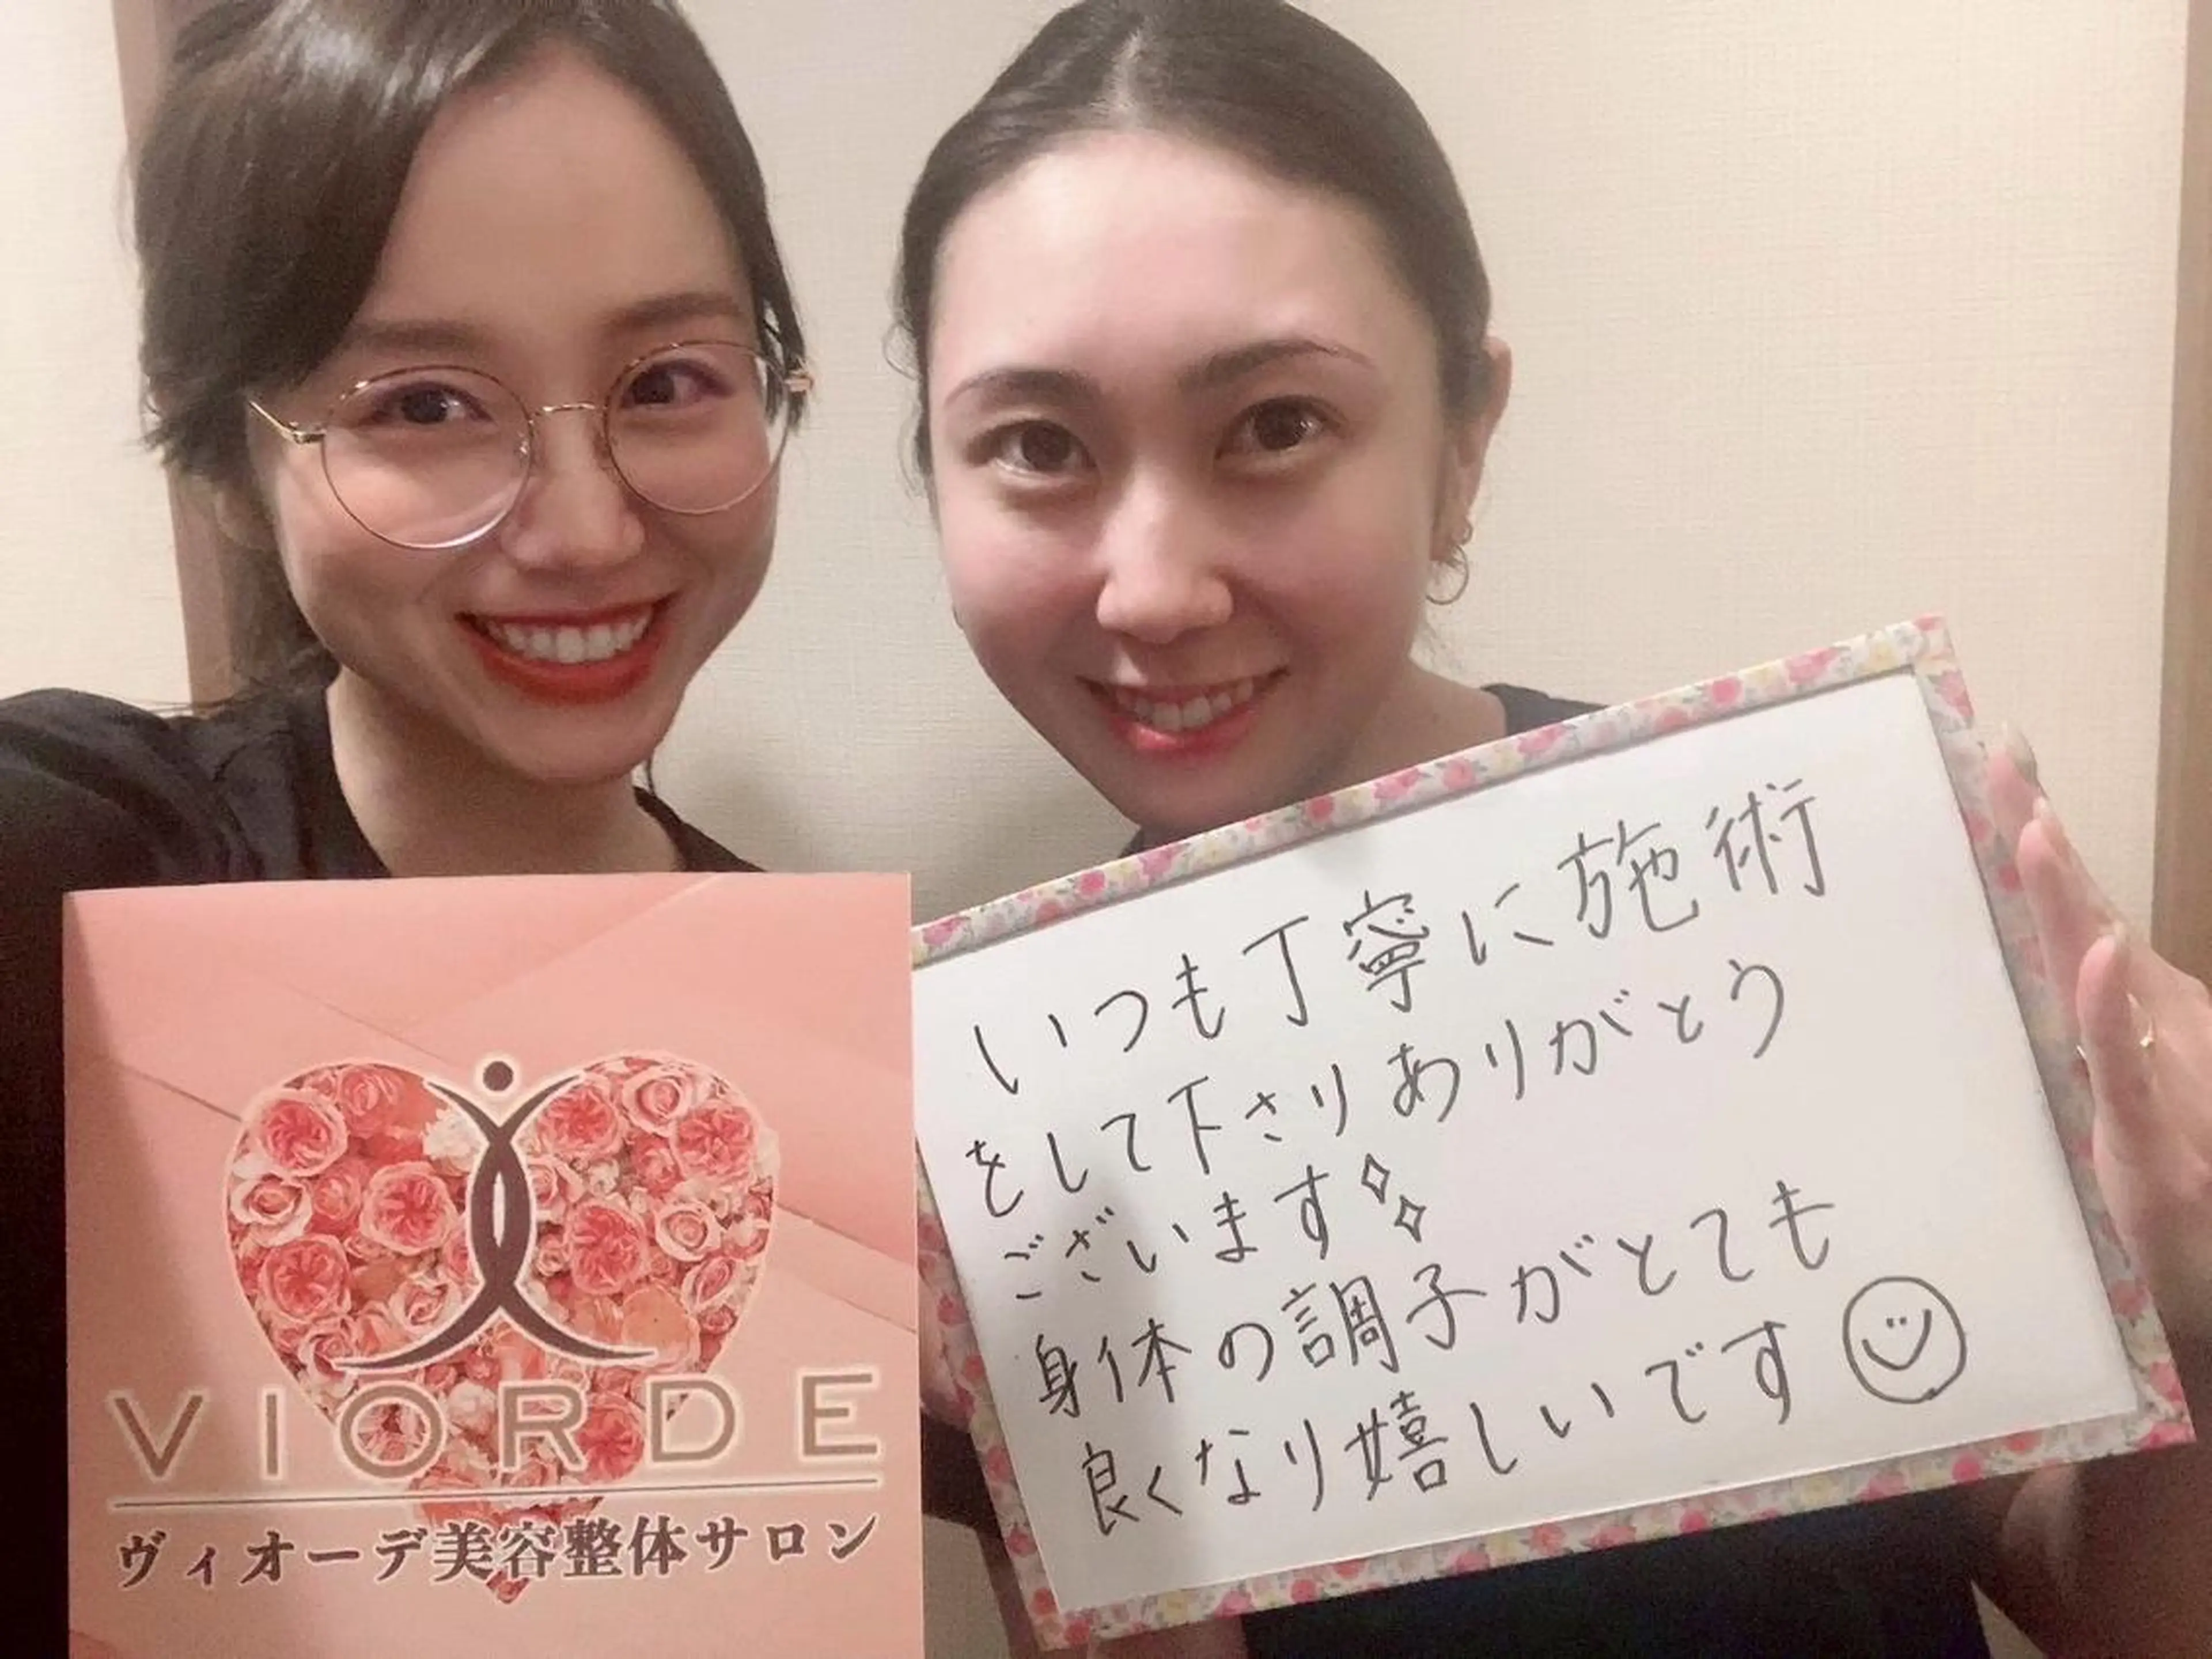 いつも丁寧に施術
をして下さりありがとう
ございます
身体の調子がとても
良くなり嬉しいです
VIORDE
ヴィオーデ美容整体サロン